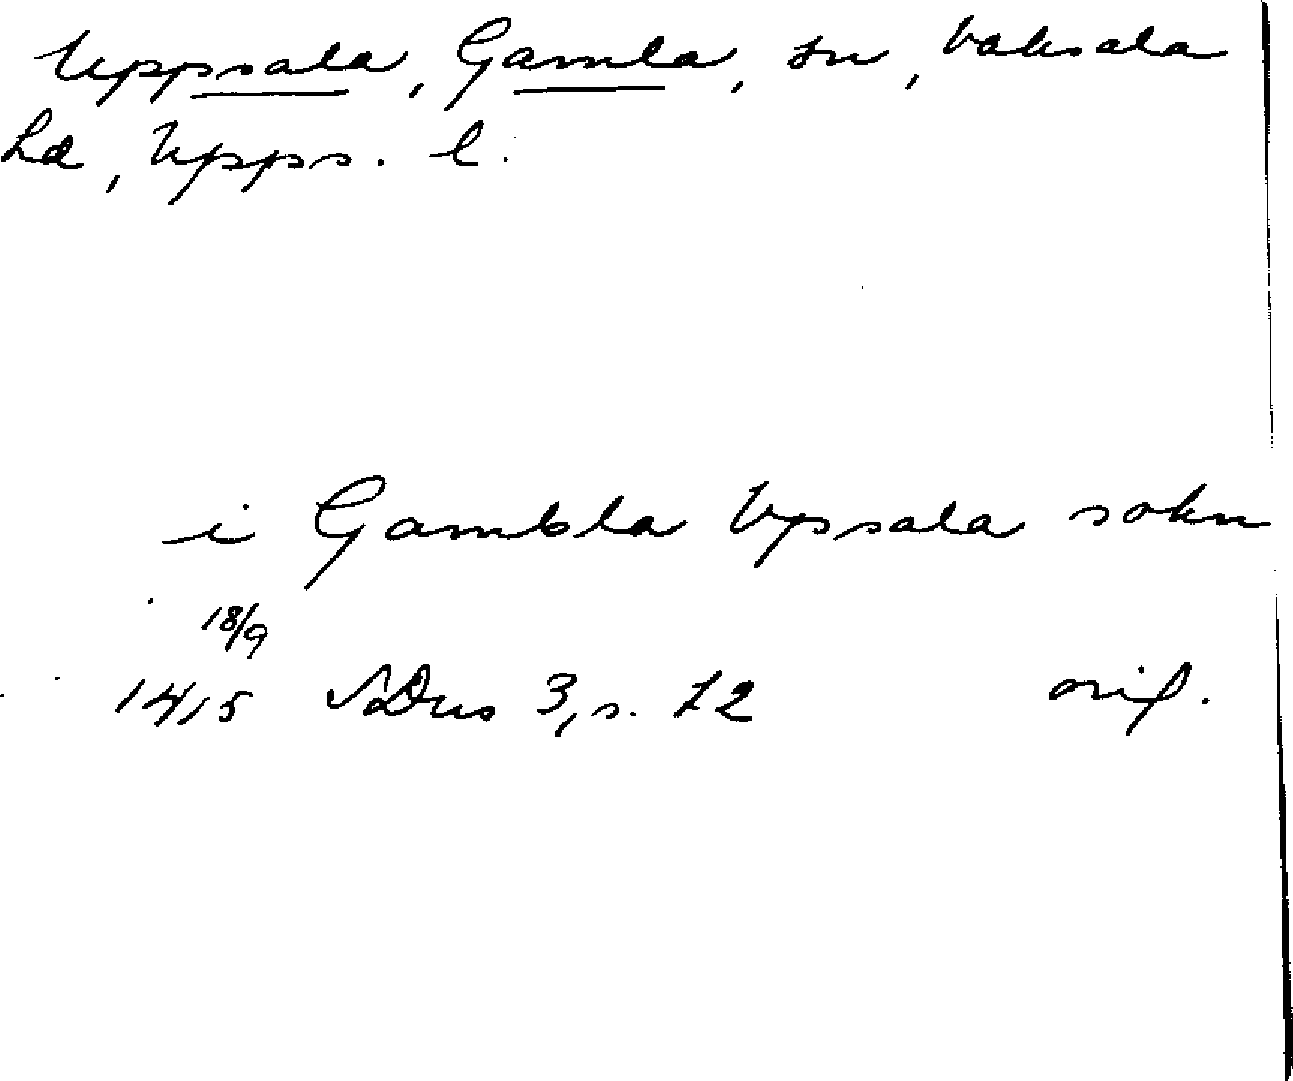 Uppsala, Gamla, sn, Vaksala
hd, Upps. l.
i Gambla Vpsala sokn
18/9
1415 SDns 3, s. 12 orig.